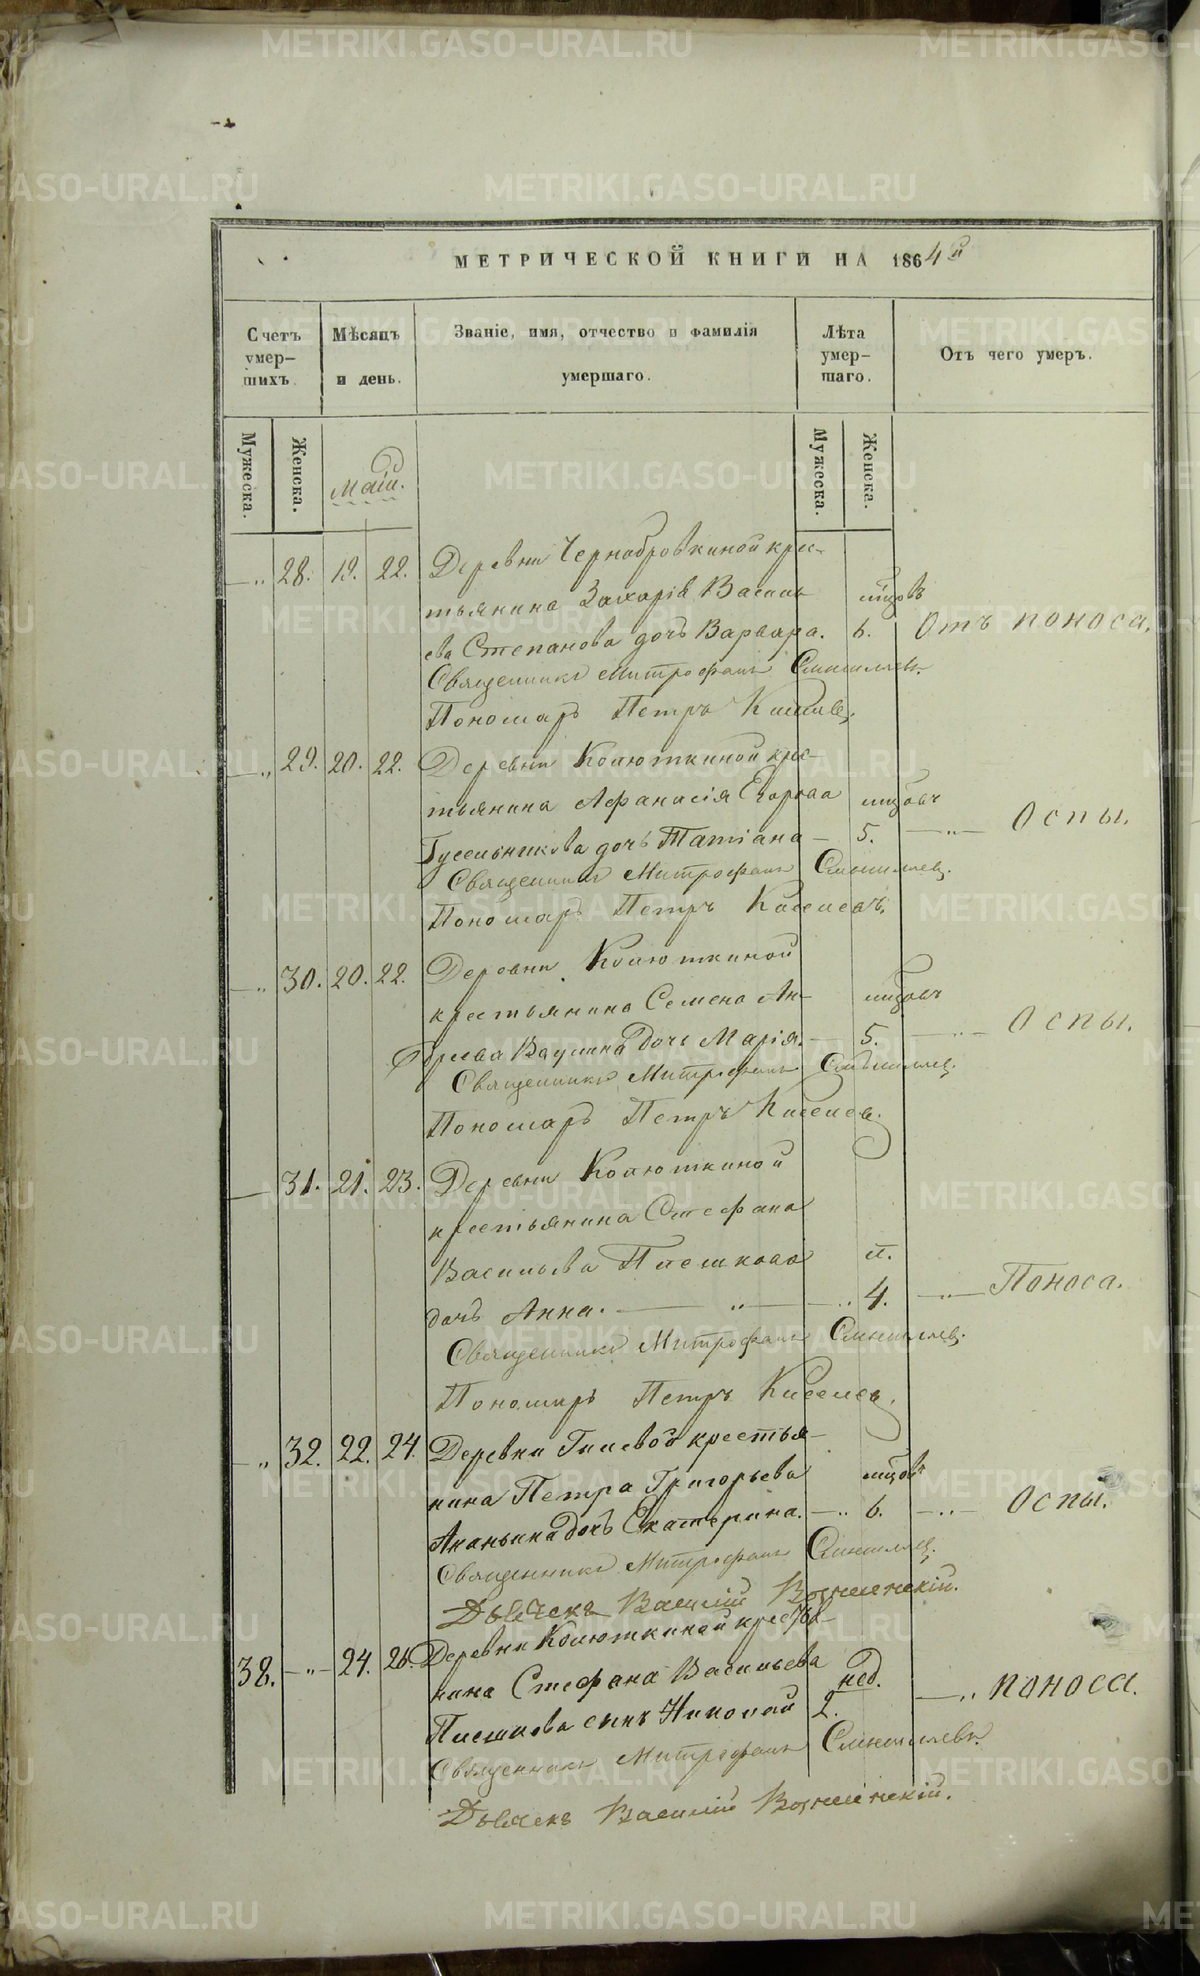 МЕТРИЧЕСКОЙ КНИГИ НА 1864й
Счетъ умер–шихъ.
Мѣсяцъ и день.
Званіе, имя, отчество и фамилія умершаго.
Лѣта умер–шаго.
Отъ чего умеръ.
Мужеска.
Женска.
Маій.
Мужеска.
Женска.
—„ 28. 19. 22. Деревни Чернобровкиной крес-
тьянина Захарія Василь мцовъ
ева Степанова дочь Варвара. 6. Отъ поноса.
Священникъ Митрофанъ
Пономарь Петръ Киселев.
—„ 29. 20. 22. Деревни Колюткиной крес-
тьянина Афанасія Егорова мцовъ
Гусельникова дочь Татіана — 5. —„— Оспы.
Священникъ Митрофанъ
Пономарь Петръ Киселевъ.
—„ 30. 20. 22. Деревни Колюткиной
крестьянина Семена Ан- мцовъ
дреева Ваулина дочь Марія. — 5. —„— Оспы.
Священникъ Митрофанъ
Пономарь Петръ Киселев.
— 31. 21. 23. Деревни Колюткиной
крестьянина Стефана
Васильева Плешкова л.
дочь Анна. — „ — „ 4. —„— Поноса.
Священникъ Митрофанъ
Пономарь Петръ Киселев.
—„ 32. 22. 24. Деревни Гилевой крестья-
нина Петра Григорьева мцовъ
Ананьина дочь Екатерина. —„ 6. —„— Оспы.
Священникъ Митрофанъ
Дьячекъ Василій
38. —„— 24. 26. Деревни Колюткиной крестья-
нина Стефана Васильева нед.
Плешкова сынъ Николай 2. —„ поноса.
Священникъ Митрофанъ
Дьячекъ Василій
METRIKI.GASO-URAL.RU